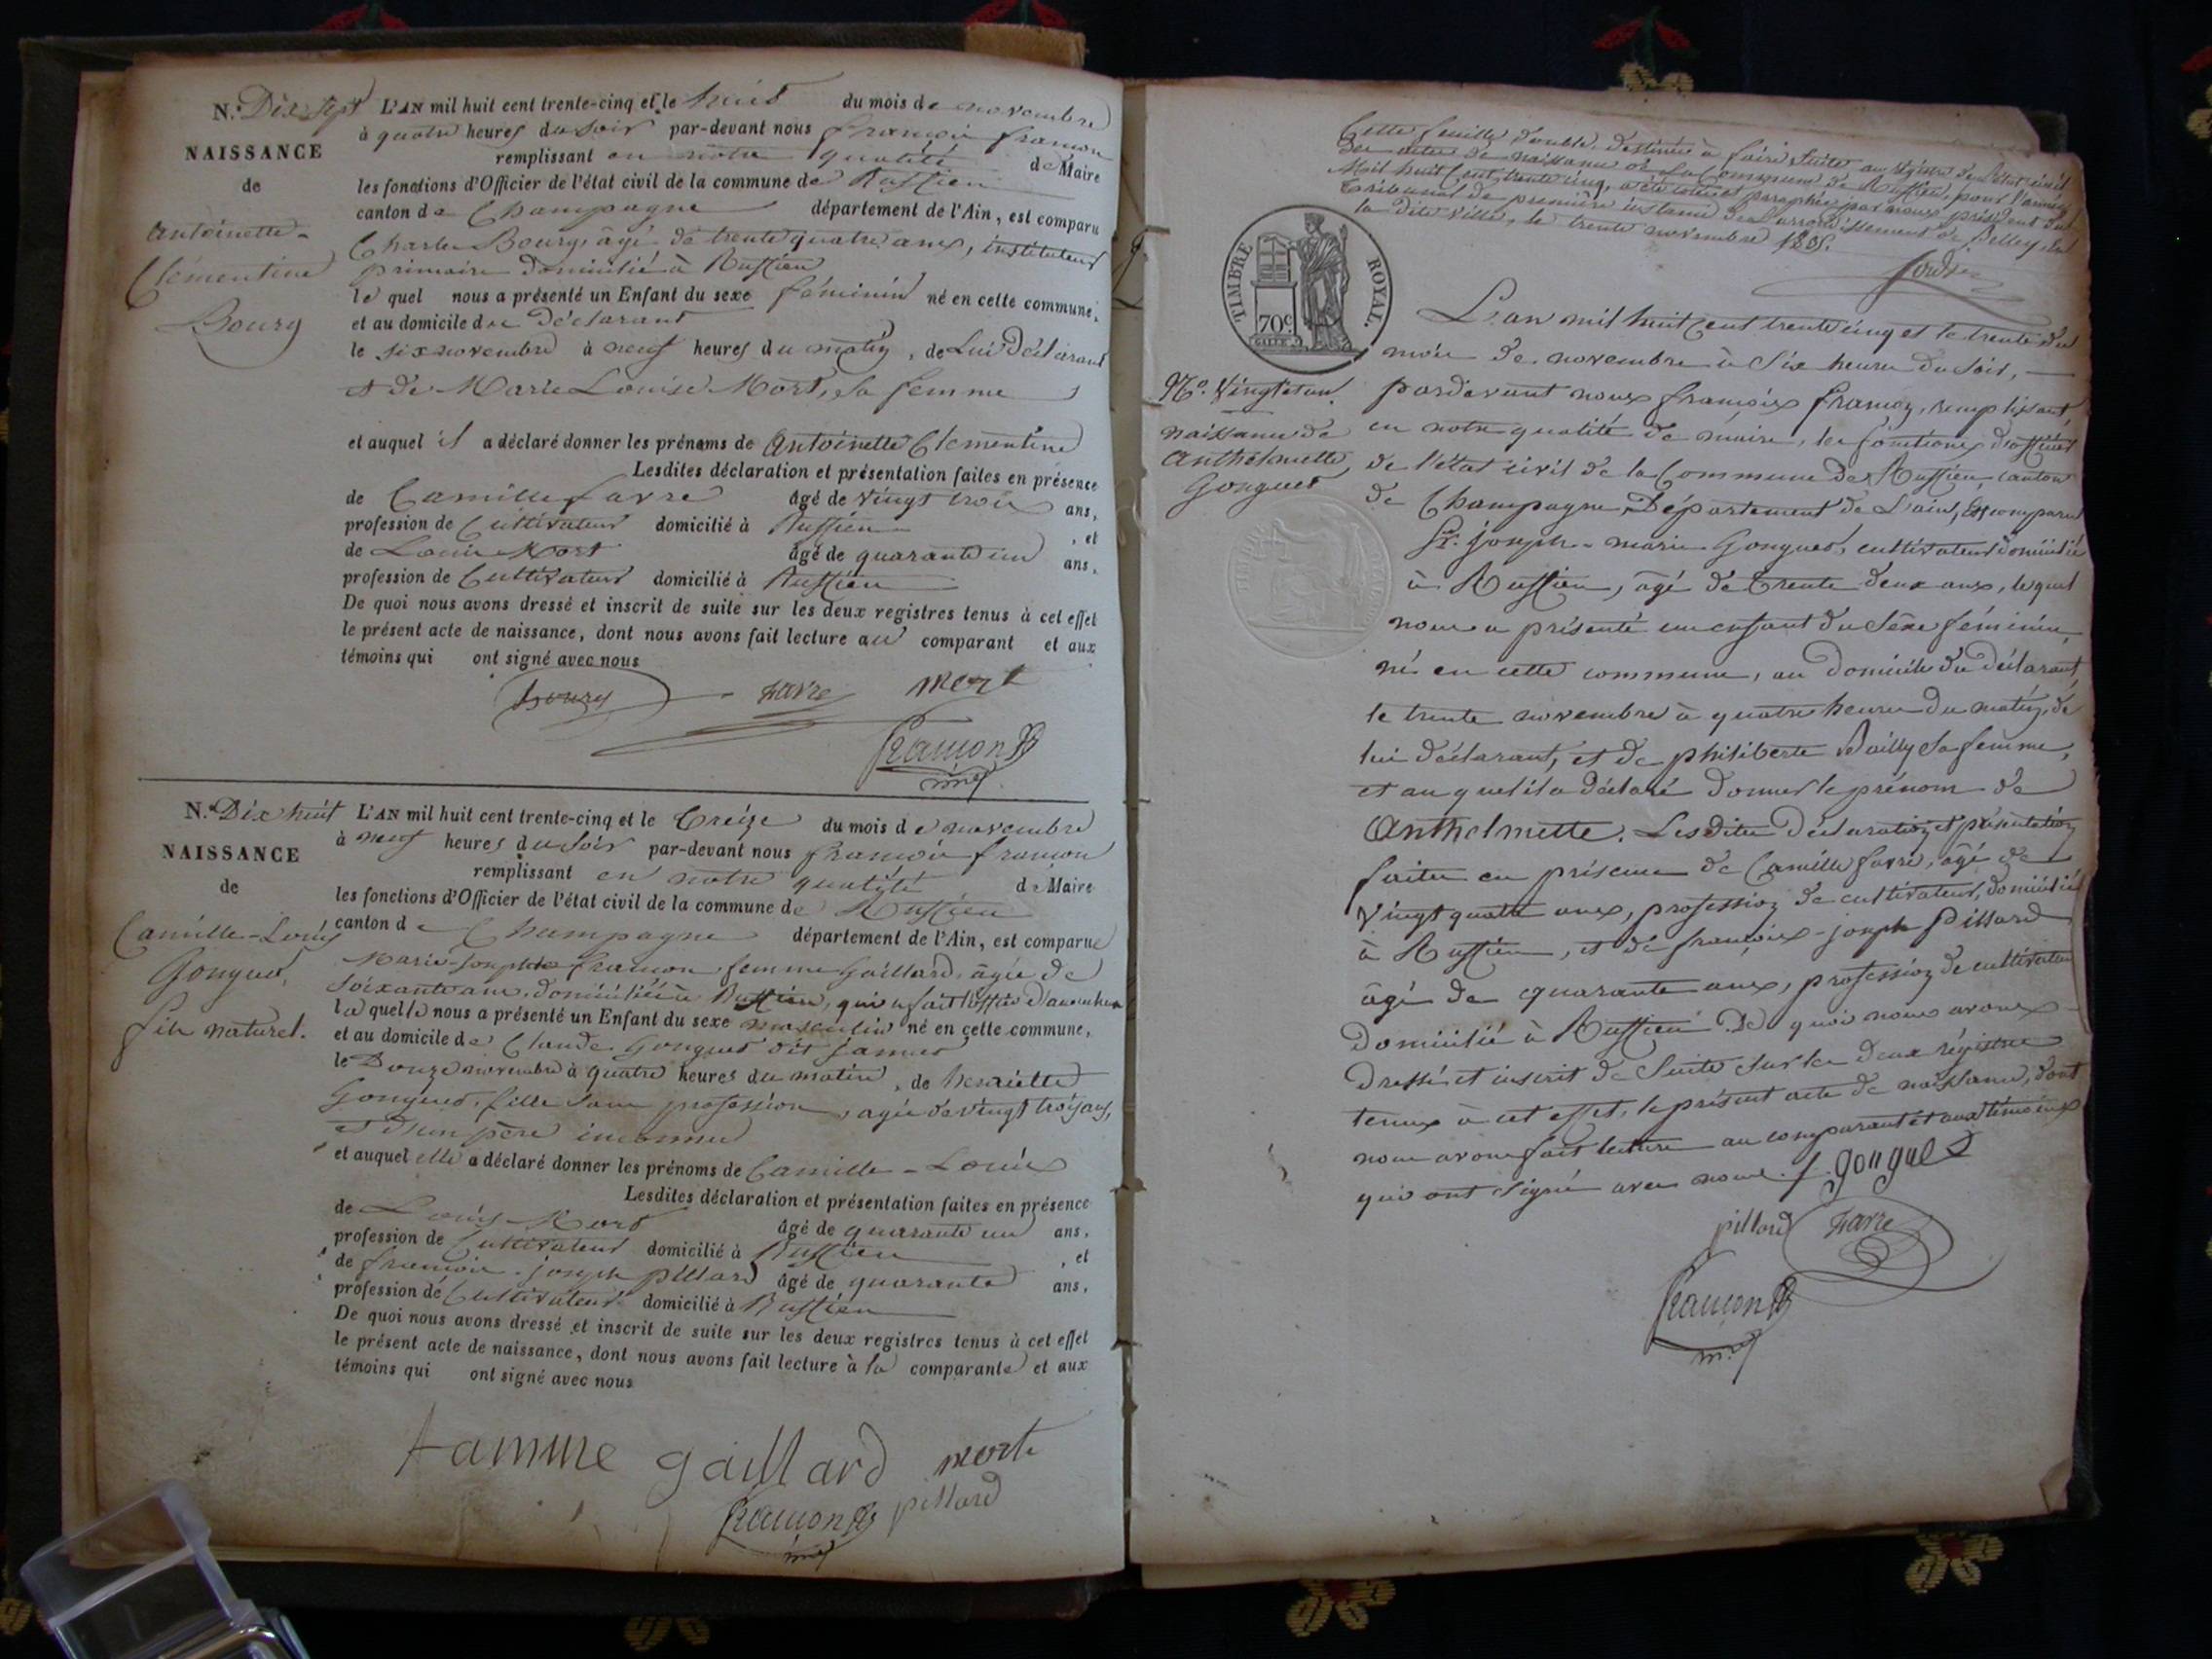 N.° Dix sept
NAISSANCE
de
Antoinette-
Clémentine
Bourg
L'AN mil huit cent trente-cinq et le huit du mois de novembre
à quatre heures du soir par-devant nous françois francon
remplissant en notre qualité de Maire
les fonctions d'Officier de l'état civil de la commune de Ruffieu
canton de Champagne département de l'Ain, est comparu
Charles Bourg, âgé de trente quatre ans, instituteur
primaire domicilié à Ruffieu
le quel nous a présenté un Enfant du sexe féminin né en cette commune,
et au domicile du Déclarant
le six novembre à neuf heures du matin, de Lui Déclarant
et de Marie Louise Mort, sa femme
et auquel il a déclaré donner les prénoms de Antoinette Clementine
Lesdites déclaration et présentation faites en présence
de Camille favre âgé de vingt trois ans,
profession de Cultivateur domicilié à Ruffieu , et
de Louis Mort âgé de quarante un ans,
profession de Cultivateur domicilié à Ruffieu
De quoi nous avons dressé et inscrit de suite sur les deux registres tenus à cet effet
le présent acte de naissance, dont nous avons fait lecture au comparant et aux
témoins qui ont signé avec nous
bourg favre mort
francon
N.° Dix huit
NAISSANCE
de
Camille-Louis
Gonguet,
fils naturel.
L'AN mil huit cent trente-cinq et le Treize du mois de novembre
à neuf heures du soir par-devant nous françois francon
remplissant en notre qualité de Maire
les fonctions d'Officier de l'état civil de la commune de Ruffieu
canton de Champagne département de l'Ain, est comparue
Marie-Josephte francon femme Gaillard, âgée de
soixante ans, domiciliée à Ruffieu, qui a fait l'office d'accoucheuse
laquelle nous a présenté un Enfant du sexe masculin né en cette commune,
et au domicile de Claude Gonguet dit
le Douze novembre à quatre heures du matin, de henriette
Gonguet, fille sans profession, agée de vingt trois ans,
et d'un père inconnu
et auquel elle a déclaré donner les prénoms de Camille-Louis
Lesdites déclaration et présentation faites en présence
de Louis Mort âgé de quarante un ans,
profession de Cultivateur domicilié à Ruffieu , et
de françois-joseph pillard âgé de quarante ans,
profession de Cultivateur domicilié à Ruffieu
De quoi nous avons dressé et inscrit de suite sur les deux registres tenus à cet effet
le présent acte de naissance, dont nous avons fait lecture à la comparante et aux
témoins qui ont signé avec nous
famme gaillard mort
francon pillard
Cette feuille double, destinée à faire suite au régistre de l'état civil
des actes de naissance de la Commune de Ruffieu, pour l'année
Mil huit Cent trente cinq, a été cotée et paraphée par nous président du
tribunal de première instance de l'arrondissement de Belley, en
la dite ville, le trente novembre 1835.
TIMBRE ROYAL.
70c
N.° Vingt et un.
naissance de
Anthelmette
Gonguet
L'an mil huit Cent trente cinq et le trente du
mois de novembre à six heures du soir,
pardevant nous françois francon, remplissant,
en notre qualité de maire, les fonctions d'officier
de l'état civil de la Commune de Ruffieu, canton
de Champagne, Département de L'ain, Est comparu
Sr. joseph-marie Gonguet, cultivateur domicilié
à Ruffieu, âgé de trente deux ans, lequel
nous a présenté un enfant du sexe féminin,
né en cette commune, au domicile du déclarant,
le trente novembre à quatre heures du matin, de
lui déclarant, et de philiberte Bailly sa femme,
et auquel il a déclaré donner le prénom de
Anthelmette. Lesdites déclaration et présentation
faites en présence de Camille favre, âgé de
vingt quatre ans, profession de cultivateur, domicilié
à Ruffieu, et de françois-joseph pillard
âgé de quarante ans, profession de cultivateur
domicilié à Ruffieu. De quoi nous avons
dressé et inscrit de suite sur les deux régistres
tenus à cet effet, le présent acte de naissance, dont
nous avons fait lecture au comparant et aux témoins
qui ont signé avec nous. J. gonguet
pillard favre
francon